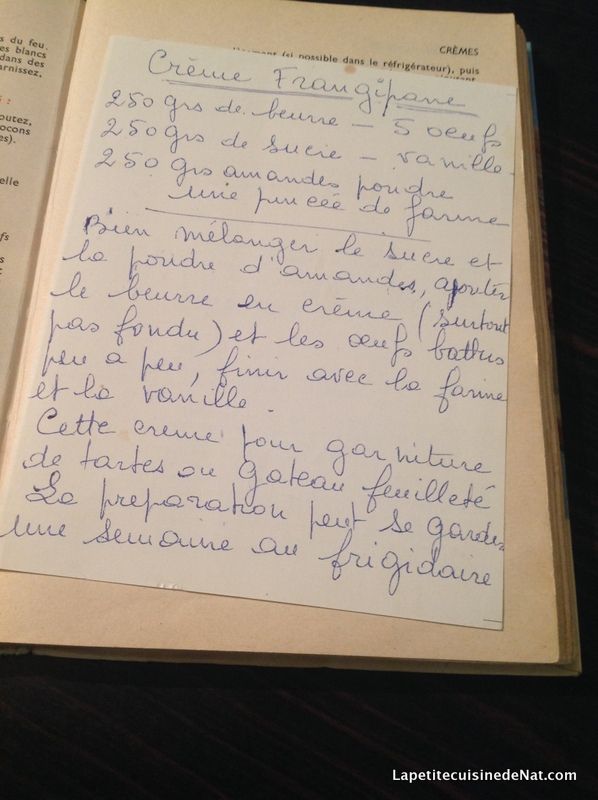 s du feu.
es blancs
dans des
arnissez,
:
outez,
ocons
es).
elle
fs
CRÈMES
(si possible dans le réfrigérateur), puis
Crème Frangipane
250 grs de beurre - 5 œufs
250 grs de sucre - vanille
250 grs amandes poudre
une pincée de farine
Bien mélanger le sucre et
la poudre d'amandes, ajouter
le beurre en crème (surtout
pas fondu) et les œufs battus
peu a peu, finir avec la farine
et la vanille.
Cette creme pour garniture
de tartes ou gateau feuilleté
La preparation peut se garder
une semaine au frigidaire
LapetitecuisinedeNat.com